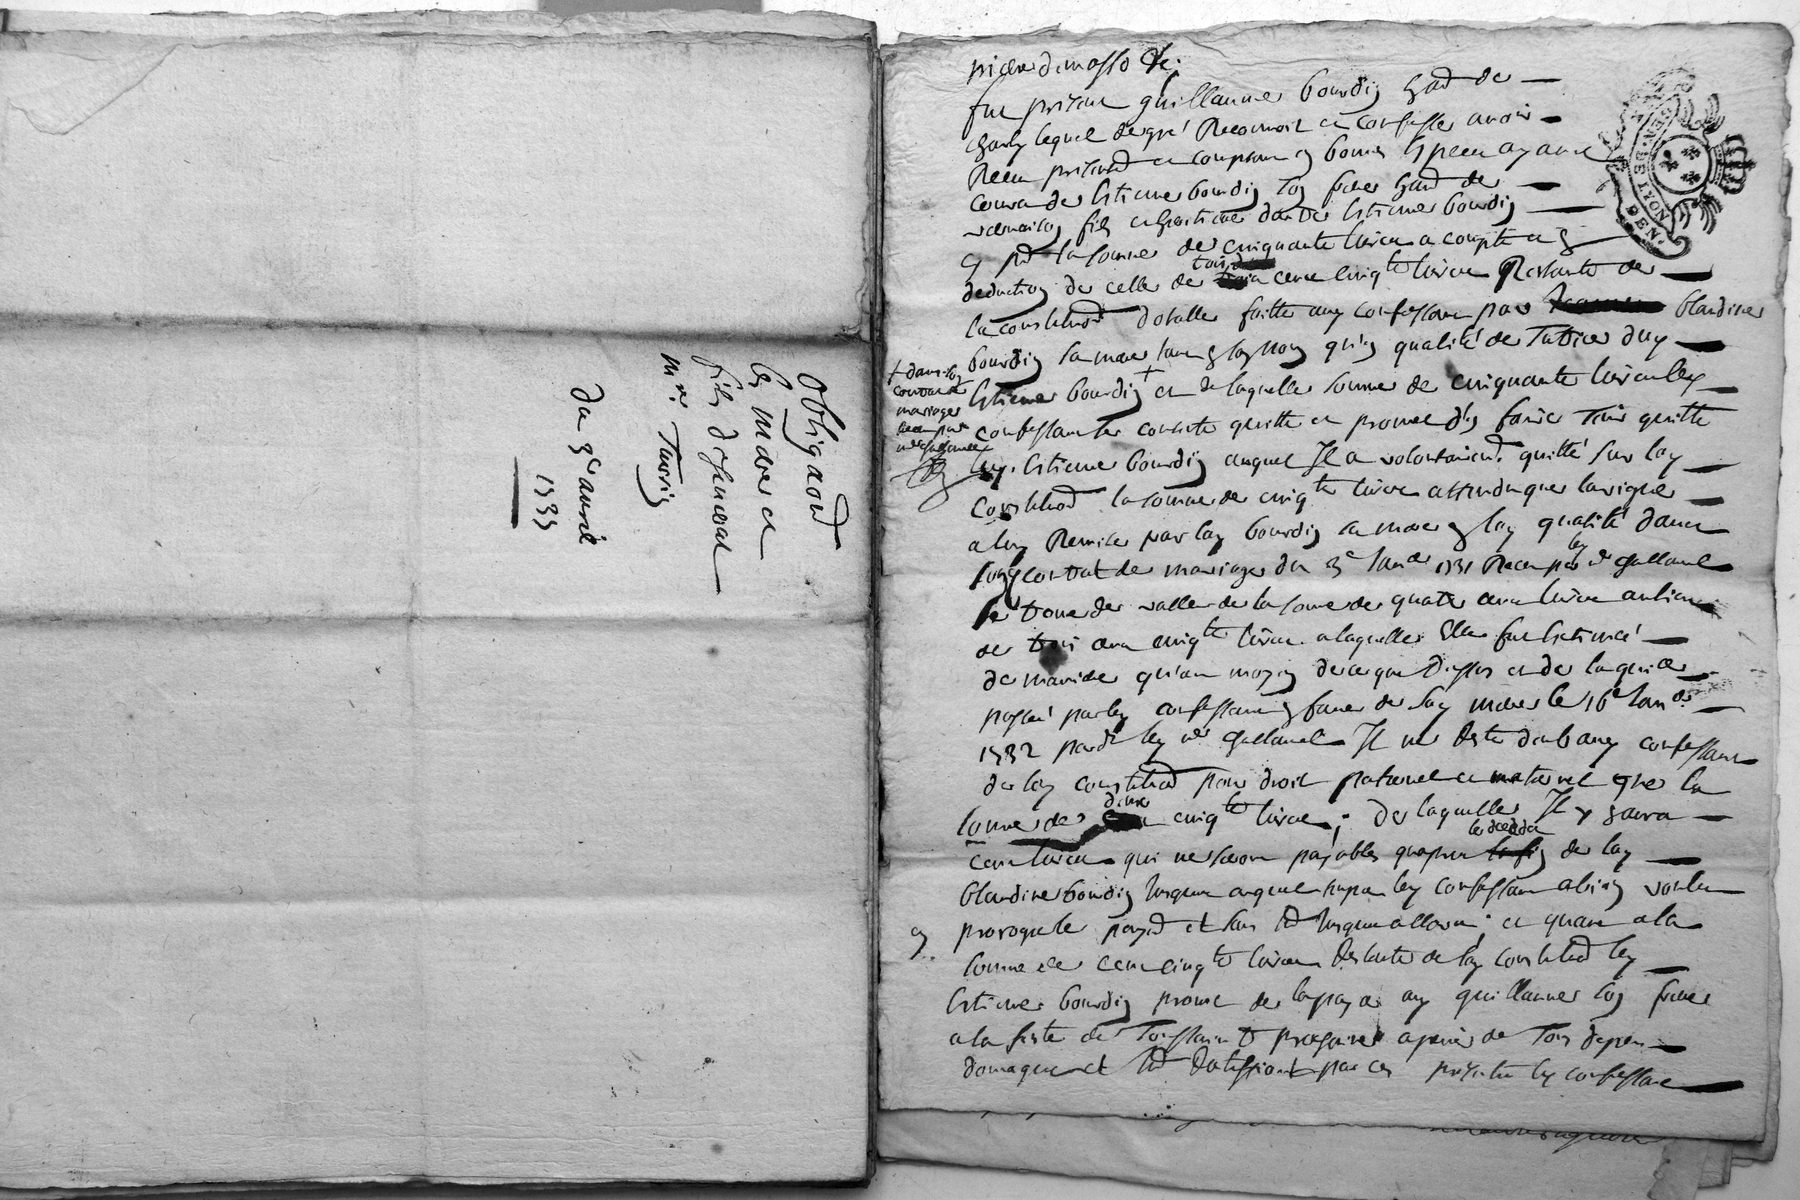 Obligaon
les mere et
fils
mre Tavrin
du 3e avril
1735
GEN. DE LYON
fut present guillaume bourdin hant de
charly lequel de gré reconnoit et confesse avoir
receu presend et comptant en bonnes especes ayant
cours de estienne bourdin son frere hant de
vernaison fils et heritier dautre estienne bourdin
cy pnt la somme de cinquante livres a compte et en
deduction de celle de trois cent cinqte livres restante de
la constituon dotalle faitte auy confessant par blandine
bourdin sa mere qu'en qualité de tutrice duy
estienne bourdin + et de laquelle somme de cinquante livres ley
confessant se contente quitte et promet en faire tenir quitte
ley estienne bourdin auquel Il a volontairemt quitté sur lay
constituon la somme de cinqte livres attendu que la vigne
a luy remise par lay bourdin sa mere en lay qualité dans
son contrat de mariage du 3e janer 1731 receu par ley me gallanel
se trouve de valleur de la some de quatre cent livres au lieu
de trois cent cinqte livres a laquelle Elle fut estimée
de maniere qu'au moyen de ce que dessus et de la quittce
passée par ley confessant en faveur de say mere le 16e janer
1732 pardt ley me gallanel Il ne reste dub auy confessant
de lay constituon pour droit paternel et maternel que la
somme de deux cent cinqte livres; de laquelle Il y aura
cent livres qui ne seront payables quapres le deceds de lay
blandine bourdin jusques auquel temps ley confessant a bien voulu
proroger le payemt et sans int jusques allors; et quant a la
somme de cent cinqte livres restante de lay constituon ley
estienne bourdin promet de la payer auy guillaume son frere
a la feste de Toussaint prochaine a peine de tous depens
domages et int par ces presentes ley confessant
+ dans son
contrat de
mariage
receu par
me gallanel